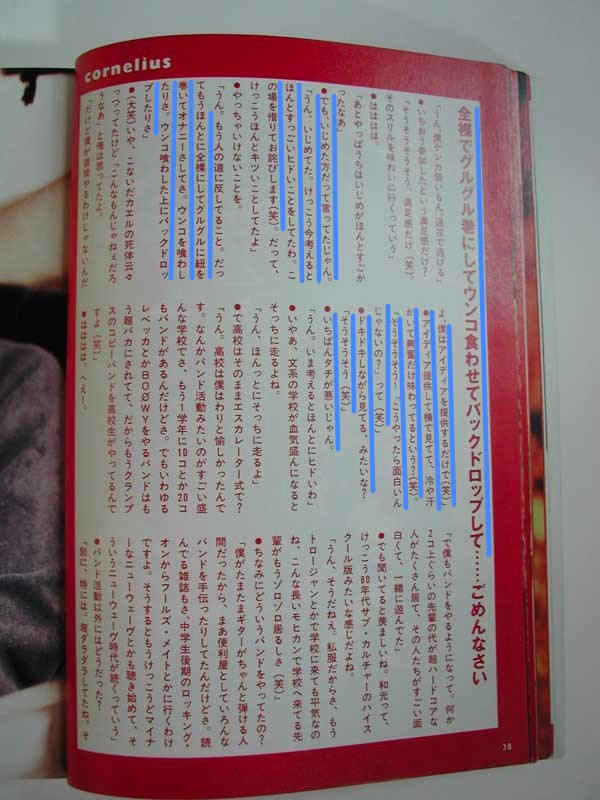 cornelius
全裸でグルグル巻にしてウンコ食わせてバックドロップして……ごめんなさい
「うん。僕ケンカ弱いもん。速攻で逃げる」
●いちおう参加したという満足感だけ?
「そうそうそうそう、満足感だけ(笑)。
そのスリルを味わいに行くっていう」
●はははは。
「あとやっぱうちはいじめがほんとすごか
ったなあ」
●でも、いじめた方だって言ってたじゃん。
「うん。いじめてた。けっこう今考えると
ほんとすっごいヒドいことをしてたわ。こ
の場を借りてお詫びします(笑)。だって、
けっこうほんとキツいことしてたよ」
●やっちゃいけないことを。
「うん。もう人の道に反してること。だっ
てもうほんとに全裸にしてグルグルに紐を
巻いてオナニーさしてさ。ウンコを喰わし
たりさ。ウンコ喰わした上にバックドロッ
プしたりさ」
●(大笑)いや、こないだカエルの死体云々
っつってたけど、「こんなもんじゃねぇだろ
うなぁ」と俺は思ってたよ。
「だけど僕が直接やるわけじゃないんだ
よ、僕はアイディアを提供するだけで(笑)」
●アイディア提供して横で見てて、冷や汗
かいて興奮だけ味わってるという?(笑)。
「そうそうそう!『こうやったら面白いん
じゃないの?』って(笑)」
●ドキドキしながら見てる、みたいな?
「そうそうそう(笑)」
●いちばんタチが悪いじゃん。
「うん。いま考えるとほんとにヒドいわ」
●いやあ、文系の学校が血気盛んになると
そっちに走るよね。
「うん、ほんっとにそっちに走るよ」
●で高校はそのままエスカレーター式で?
「うん。高校は僕はわりと愉しかったんで
す。なんかバンド活動みたいのがすごい盛
んな学校でさ、もう1学年に10コとか20コ
もバンドがあるんだけどさ。でもいわゆる
レベッカとかBOØWYをやるバンドはも
う超バカにされてて、だからもうクランプ
スのコピーバンドを高校生がやってるんで
すよ(笑)」
●はははは、へぇー。
「で僕もバンドをやるようになって。何か
2コ上ぐらいの先輩の代が超ハードコアな
人がたくさん居て、その人たちがすごい面
白くて、一緒に遊んでた」
●でも聞いてると羨ましいね。和光って、
けっこう80年代サブ・カルチャーのハイス
クール版みたいな感じだよね。
「うん、そうだねえ。私服だからさ、もう
トロージャンとかで学校に来ても平気なの
ね、こんな長いモヒカンで学校へ来てる先
輩がもうゾロゾロ居るしさ(笑)」
●ちなみにどういうバンドをやってたの?
「僕がたまたまギターがちゃんと弾ける人
間だったから、まあ便利屋としていろんな
バンドを手伝ったりしてたんだけどさ。読
んでる雑誌もさ、中学生後期のロッキング・
オンからフールズ・メイトとかに行くわけ
ですよ。そうするともうけっこうどマイナ
ーなニューウェーヴとかも聴き始めて、そ
ういうニューウェーヴ時代が続くっていう」
●バンド活動以外にはどうだった?
「別に、特には。超ダラダラしてたね。そ
30